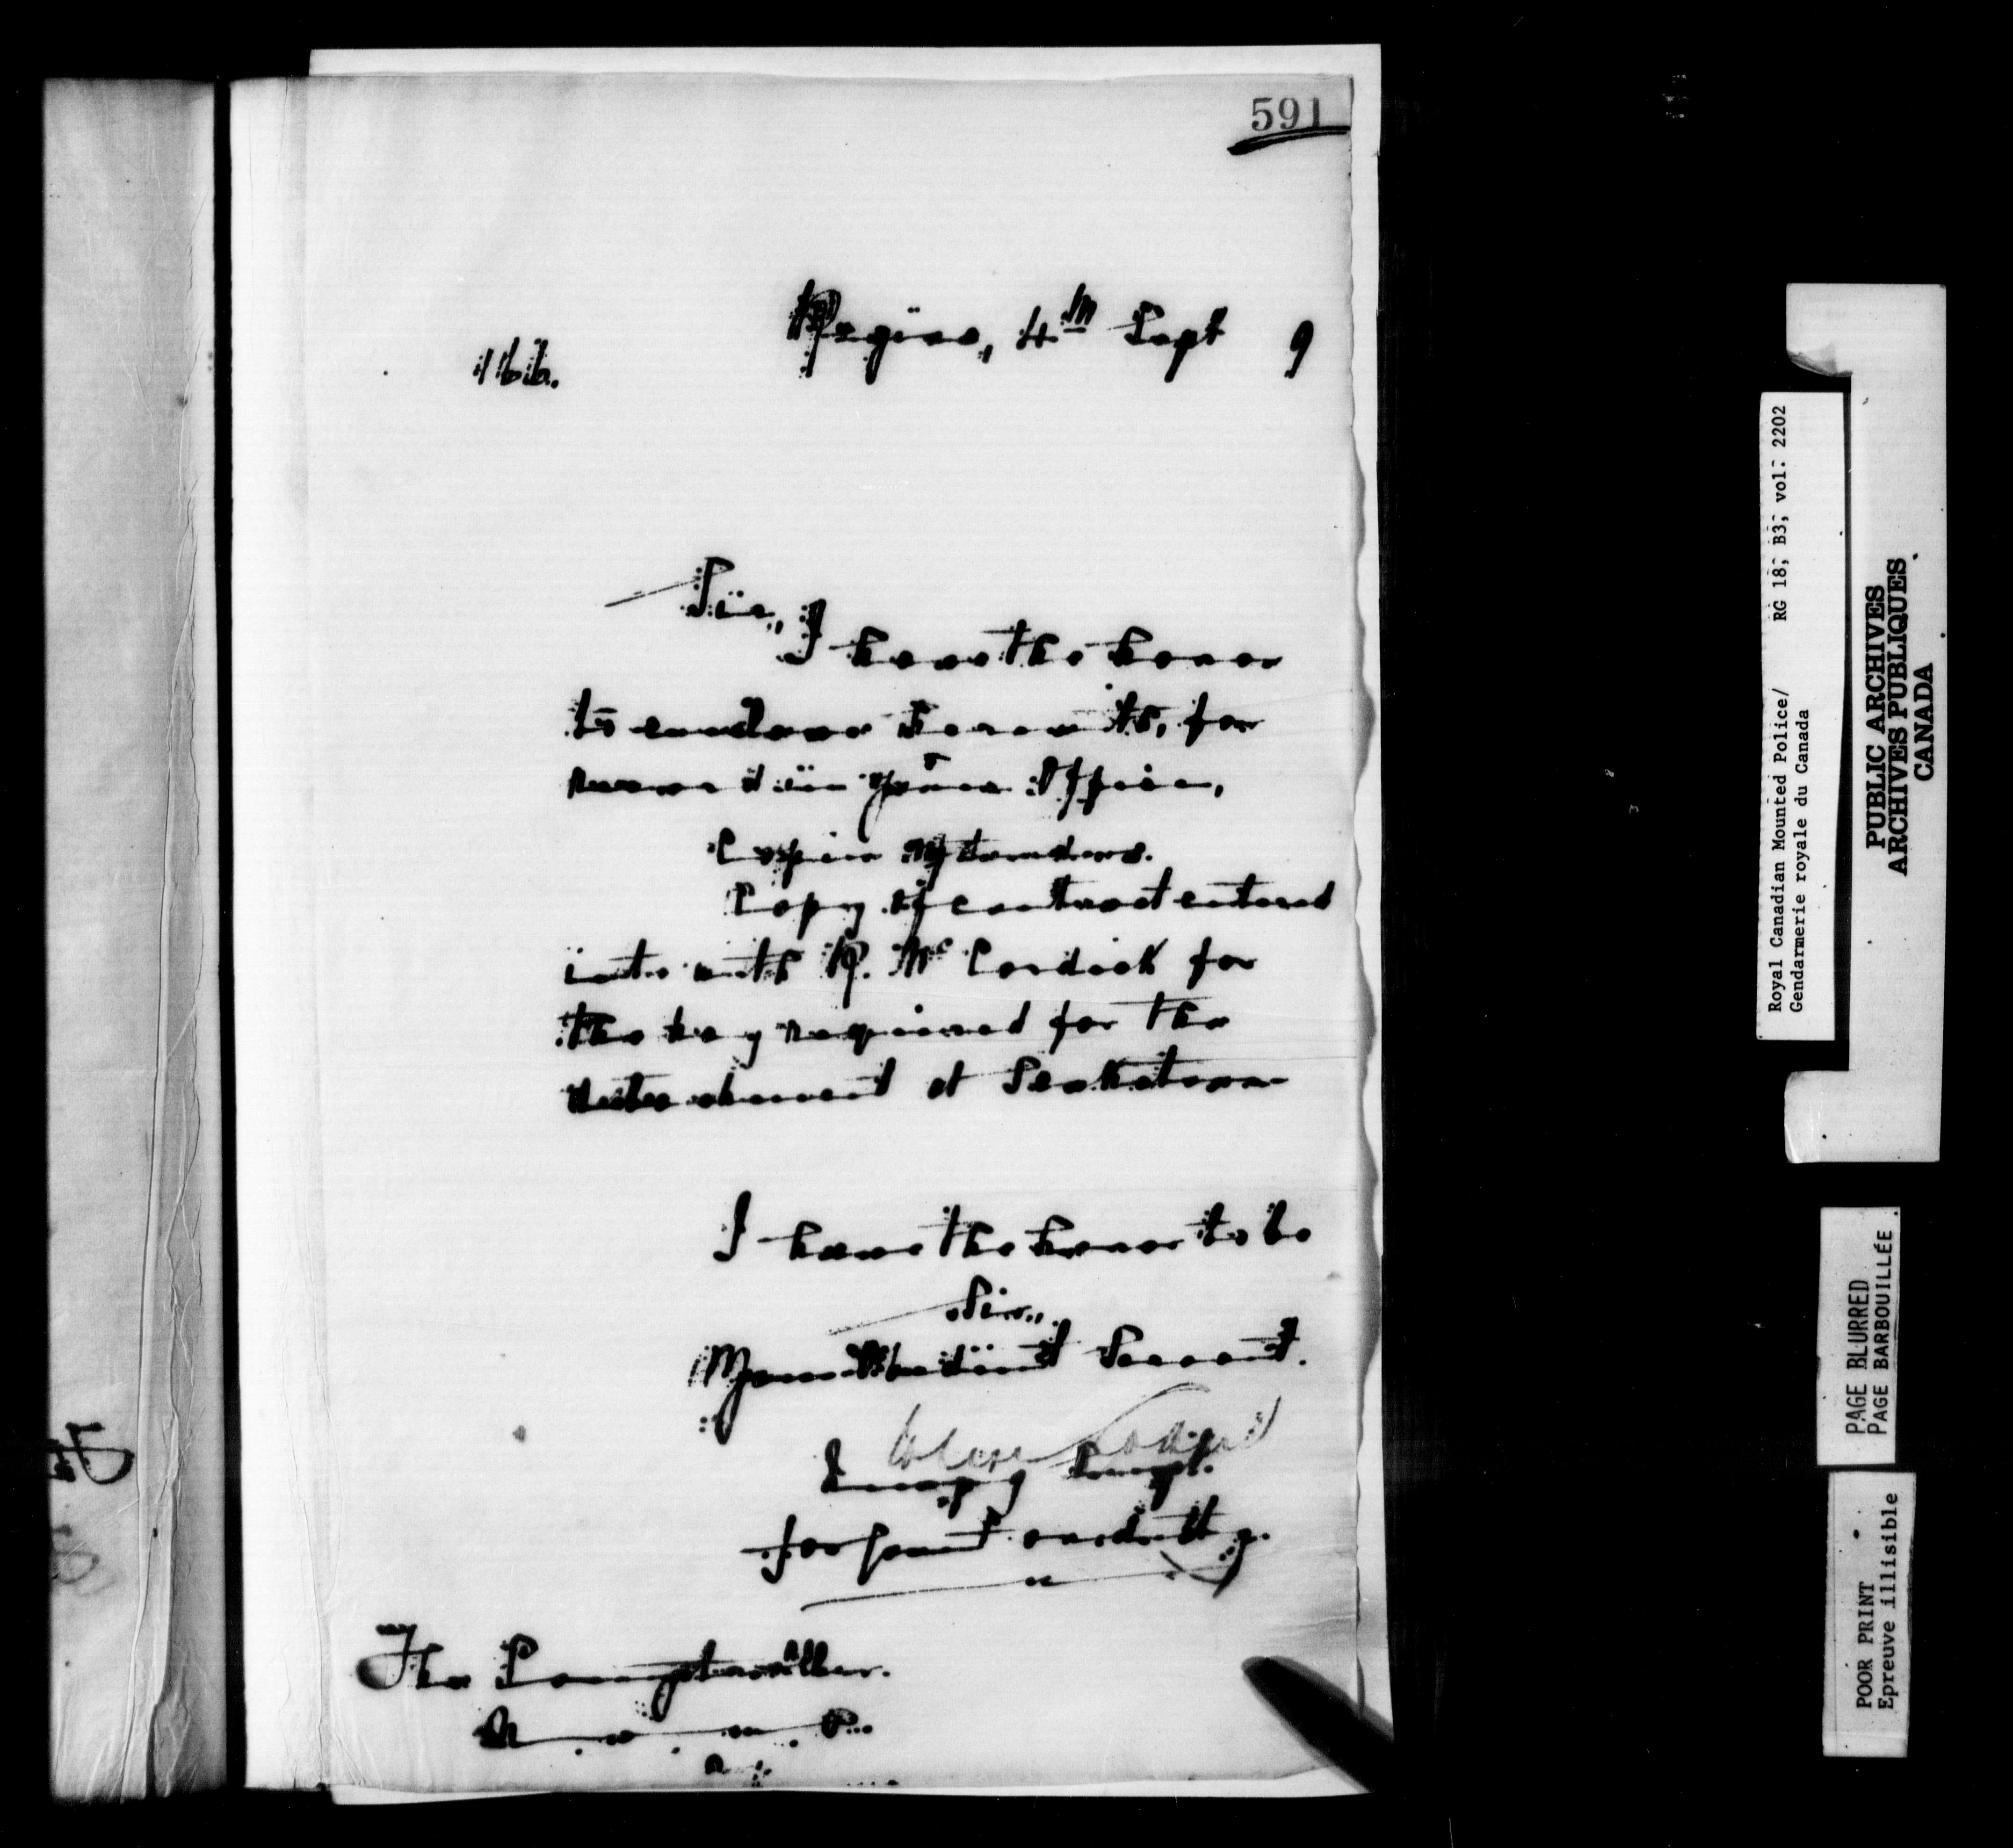 591
Regina, 4th Sept 9
166.
Sir,
I have the honor
to enclose herewith, for
record in your Office,
Copies of tenders.
Copy of contract entered
into with R. Mc Cordick for
the hay required for the
detachment at Saskatoon
I have the honor to be
Sir,
Your Obedient Servant.
Supt.
The Comptroller.
Royal Canadian Mounted Police/ RG 18, B3, vol. 2202
Gendarmerie royale du Canada
PUBLIC ARCHIVES
ARCHIVES PUBLIQUES
CANADA
PAGE BLURRED
PAGE BARBOUILLÉE
POOR PRINT
Epreuve illisible